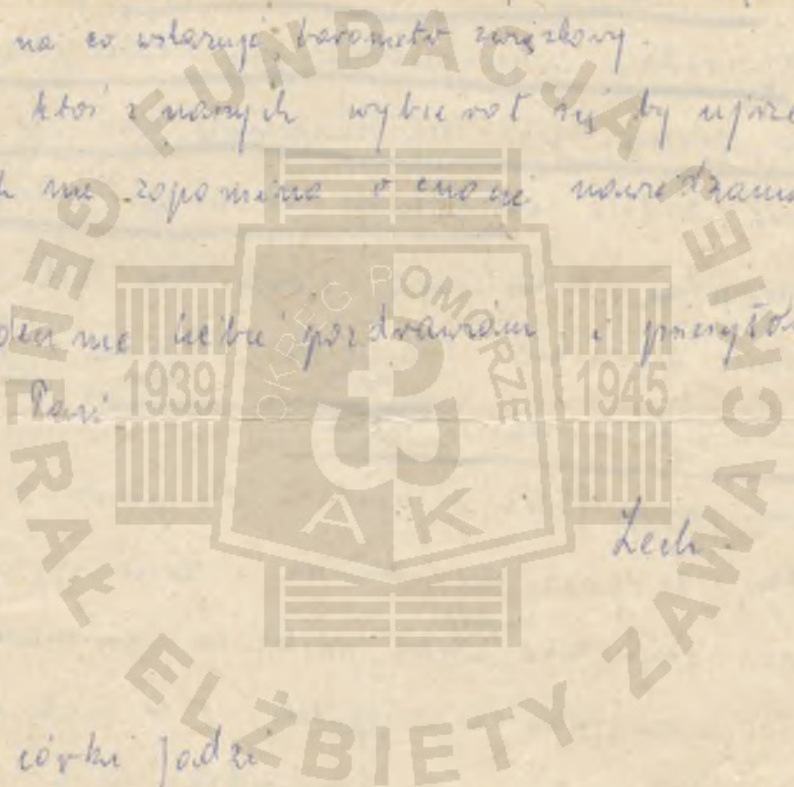 na co wskazuje barometr związkowy.
ktoś z naszych wybierał się by
nie zapomina o nawiedzania
nie Ciebie pozdrawiam i
Pani
Lech.
córki Jadzi
FUNDACJA
GENERAŁ ELŻBIETY ZAWACKIEJ
OKRĘG POMORZE
1939 1945
AK